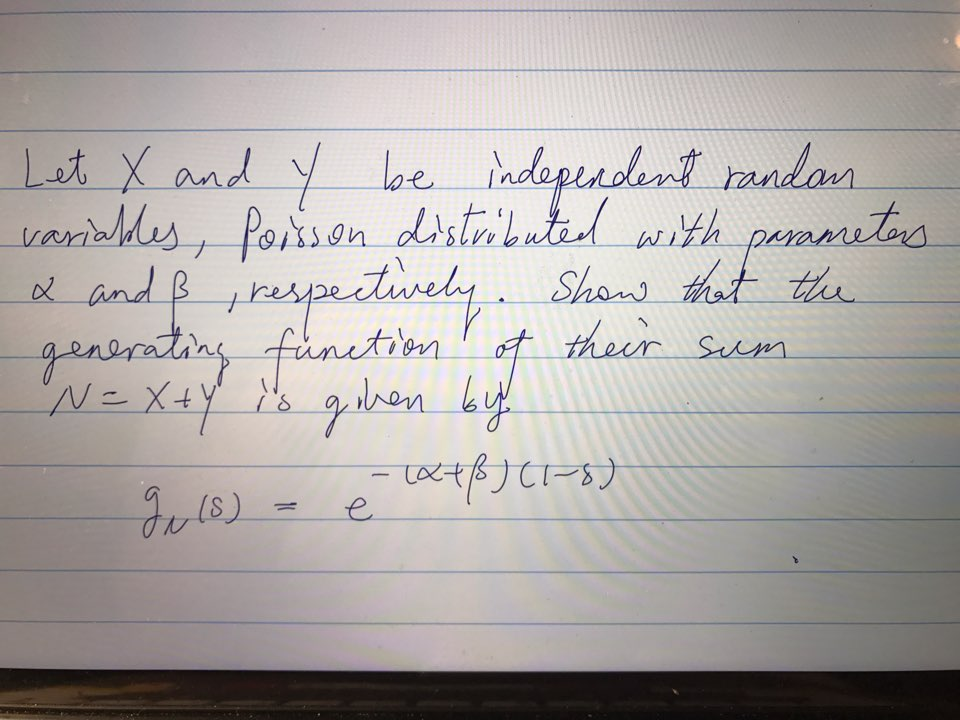 Let X and Y be independent random
variables, Poisson distributed with parameters
α and β, respectively. Show that the
generating function of their sum
N = X+Y is given by
g_N(s) = e^{-(α+β)(1-s)}